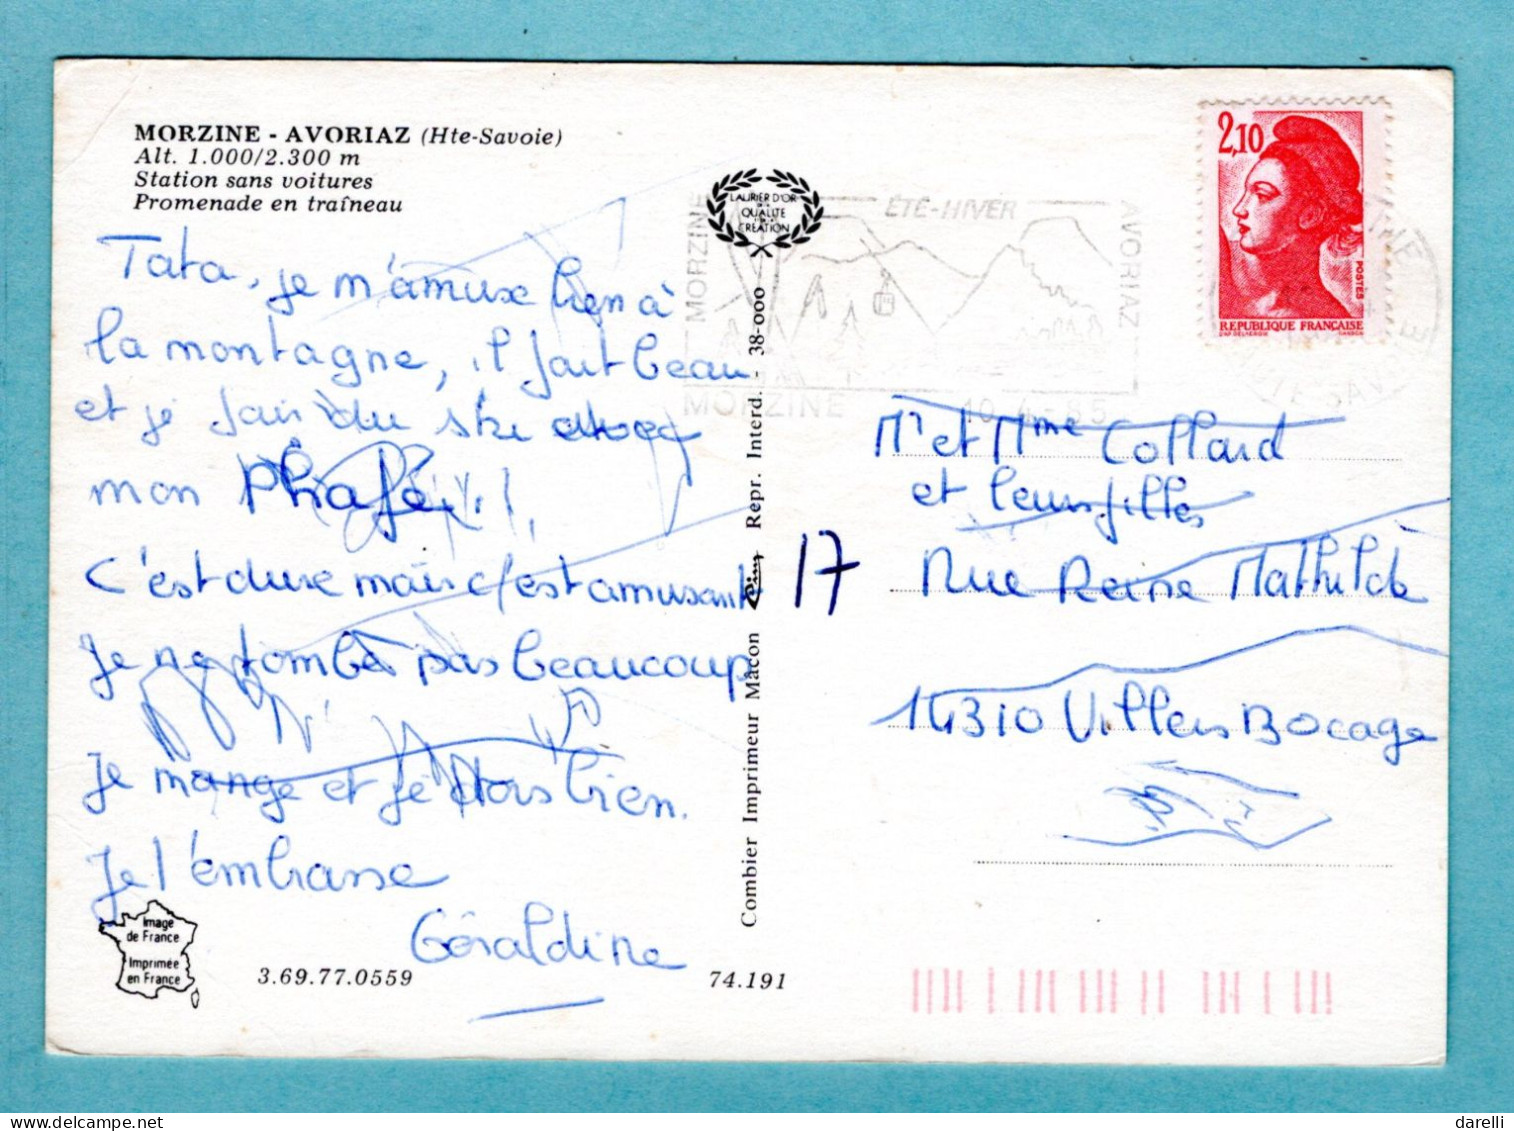 MORZINE - AVORIAZ (Hte-Savoie)
Alt. 1.000/2.300 m
Station sans voitures
Promenade en traîneau
Tata, je m'amuse bien à
la montagne, il fait beau
et je fais du ski avec
mon
C'est dure mais c'est amusant
Je ne tombe pas beaucoup
Je mange et je dors bien.
Je t'embrasse
Géraldine
Image
de France
Imprimée
en France
3.69.77.0559
74.191
Combier Imprimeur Macon Cim Repr. Interd. - 38-000
LAURIER D'OR
DE LA
QUALITE
CREATION
MORZINE
ÉTÉ-HIVER
AVORIAZ
MORZINE
10-4-85
2,10
POSTES
REPUBLIQUE FRANÇAISE
D'AP. DELACROIX GANDON
Mr et Mme Collard
et leurs filles
17 Rue Reine Mathilde
14310 Villers Bocage
darelli